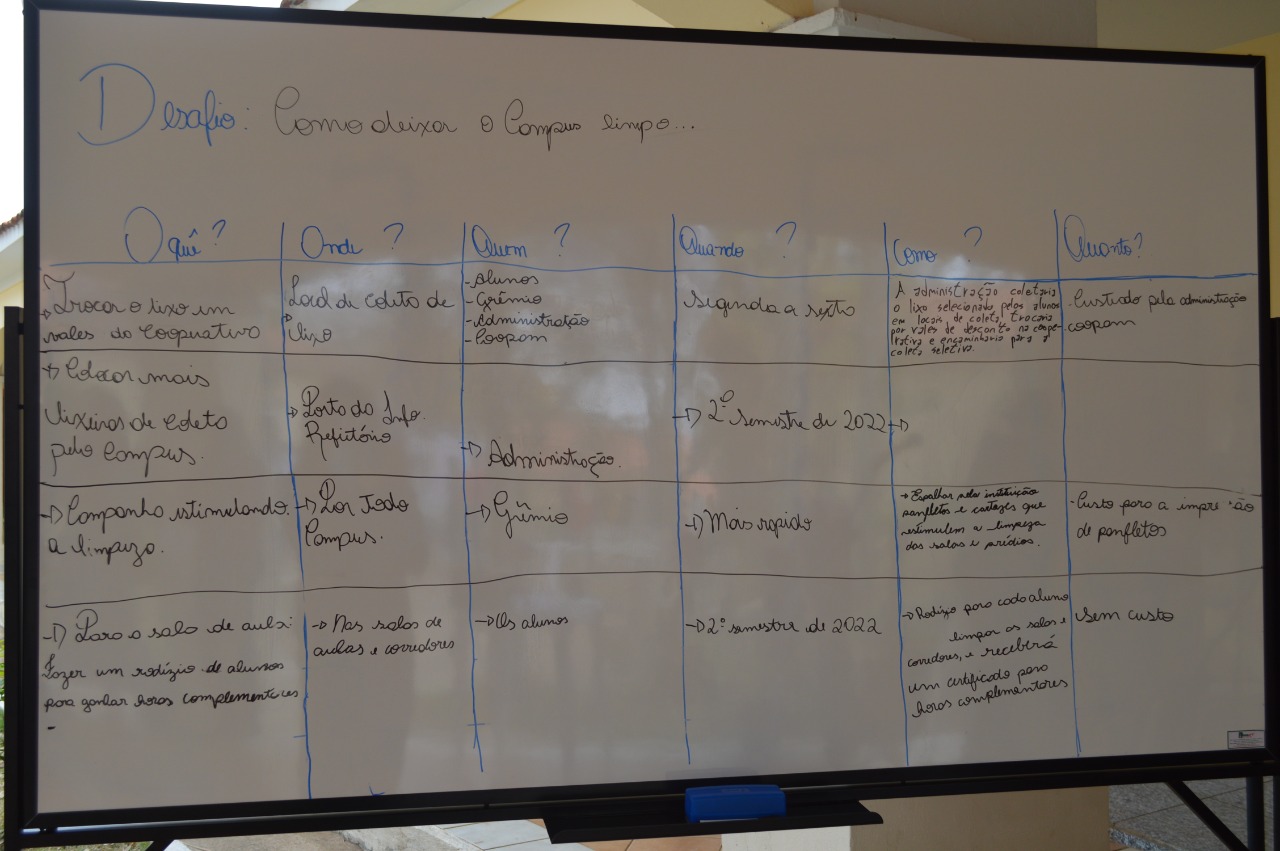 Desafio: Como deixar o Campus limpo...
O quê?
Onde ?
Quem ?
Quando ?
Como ?
Quanto?
Trocar o lixo em
vales da Cooperativa
Local de coleta de
lixo
- Alunos
- Grêmio
- Administração
- Coopam
Segunda a sexta
A administração coletaria
o lixo selecionado pelos alunos
em locais de coleta, trocaria
por vales de desconto na coope-
rativa e encaminharia para a
coleta seletiva.
- Custiado pela administração
coopam
Colocar mais
lixeiras de coleta
pelo Campus.
→ Porta do Info.
Refeitório
→ Administração.
→ 2º semestre de 2022
→
→ Campanha estimulando
a limpeza.
→ Por Todo
Campus.
→ Grêmio
→ Mais rapido
→ Espalhar pela instituição
panfletos e cartazes que
estimulem a limpeza
das salas e prédios.
- Custo para a impre ão
de panfletos
→ Para a sala de aula:
Fazer um rodízio de alunos
para ganhar horas complementares
-
→ Nas salas de
aulas e corredores
→ Os alunos
→ 2º semestre de 2022
→ Rodízio para cada aluno
limpar as salas e
corredores, e receberá
um certificado para
horas complementares
Sem custo